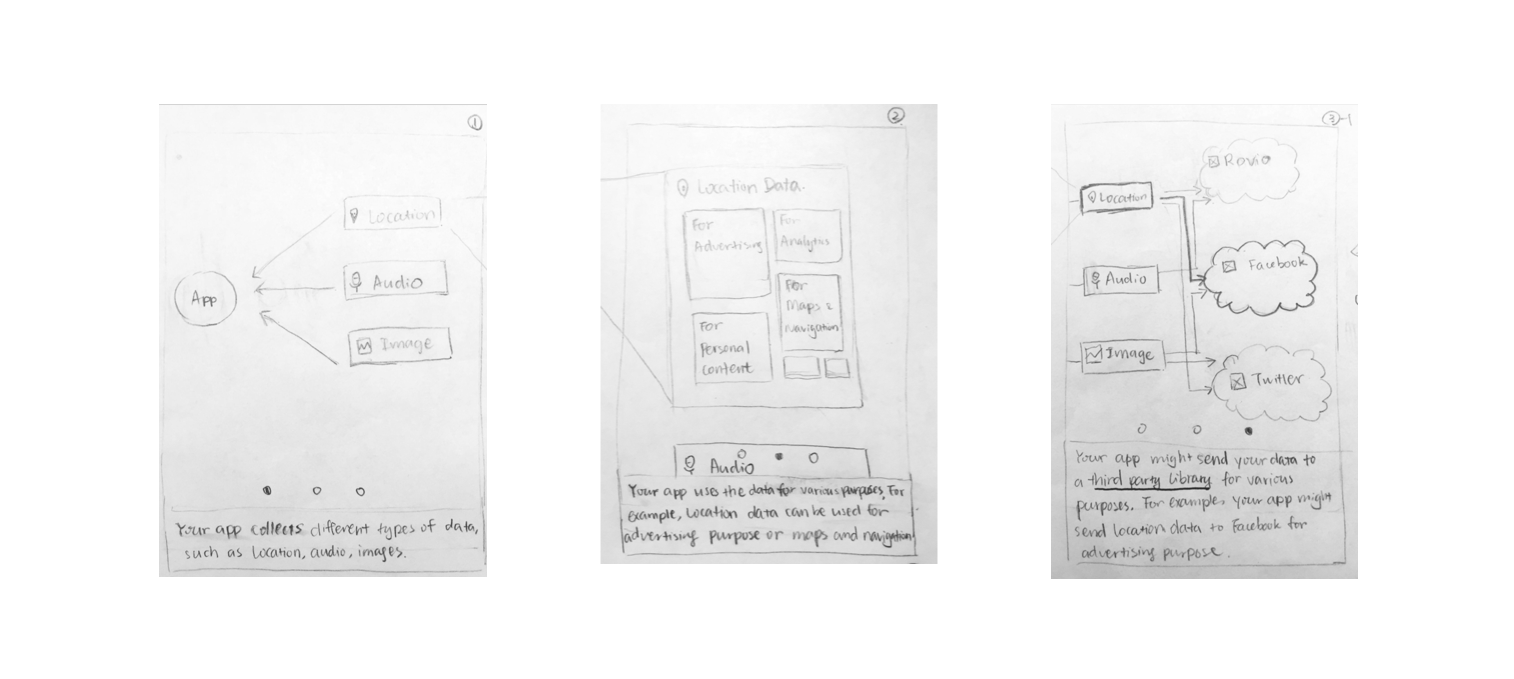 ①
Location
Audio
App
Image
Your app collects different types of data,
such as location, audio, images.
②
Location Data.
For
Advertising
For
Analytics
For
Maps &
navigation
For
Personal
content
Audio
Your app uses the data for various purposes. For
example, Location data can be used for
advertising purpose or maps and navigation
③-1
Rovio
Location
Facebook
Audio
Image
Twitter
Your app might send your data to
a third party library for various
purposes. For example, your app might
send location data to Facebook for
advertising purpose.